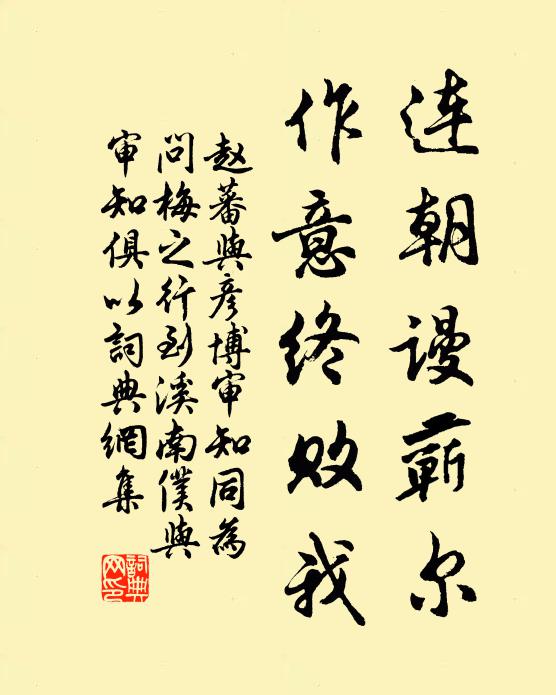 连朝谩蕲尔
作意终败我
赵蕃与彦博审知同为
问梅之行到溪南仆与
审知俱以词典网集
词典网印